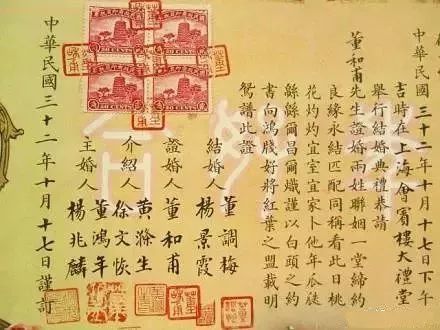 中華民國三十二年十月十七日下午
吉時在上海會賓樓大禮堂
舉行結婚典禮恭請
董和甫先生證婚兩姓聯姻一堂締約
良緣永結匹配同稱看此日桃
花灼灼宜室宜家卜他年瓜瓞
緜緜爾昌爾熾謹以白頭之約
書向鴻牋好將紅葉之盟載明
鴛譜此證
結婚人 董調梅
楊景霞
證婚人 董和甫
介紹人 黃滌生
徐文恢
主婚人 董鴻年
楊兆麟
中華民國三十二年十月十七日謹訂